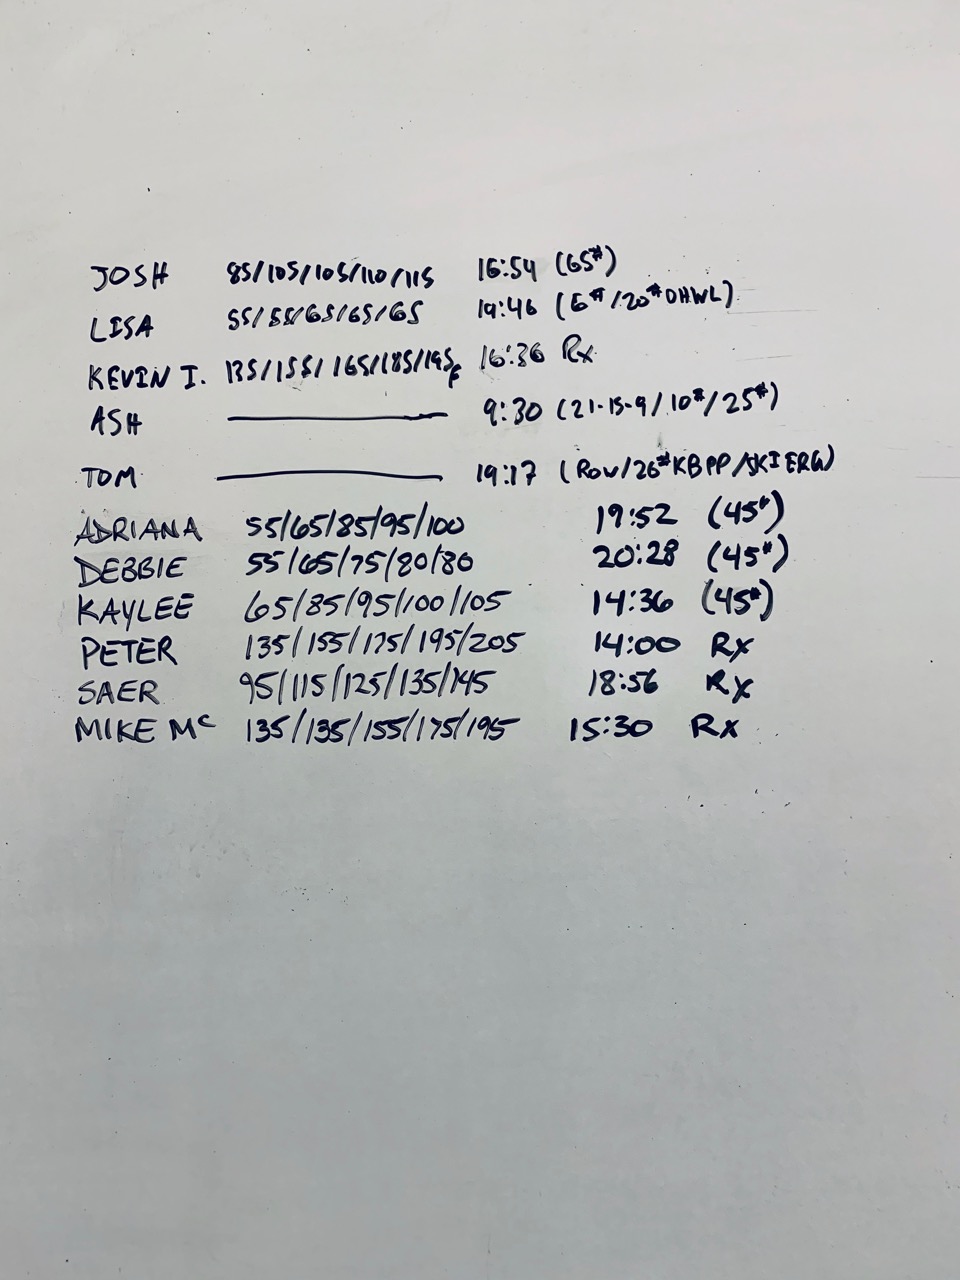 JOSH 85/105/105/110/115 16:54 (65#)
LISA 55/55/65/65/65 19:46 (5#/20#DHWL)
KEVIN I. 135/155/165/185/195F 16:36 Rx
ASH 9:30 (21-15-9/10#/25#)
TOM 19:17 (ROW/26#KBPP/SKIERG)
ADRIANA 55/65/85/95/100 19:52 (45#)
DEBBIE 55/65/75/80/80 20:28 (45#)
KAYLEE 65/85/95/100/105 14:36 (45#)
PETER 135/155/175/195/205 14:00 Rx
SAER 95/115/125/135/145 18:56 Rx
MIKE Mc 135/135/155/175/195 15:30 Rx